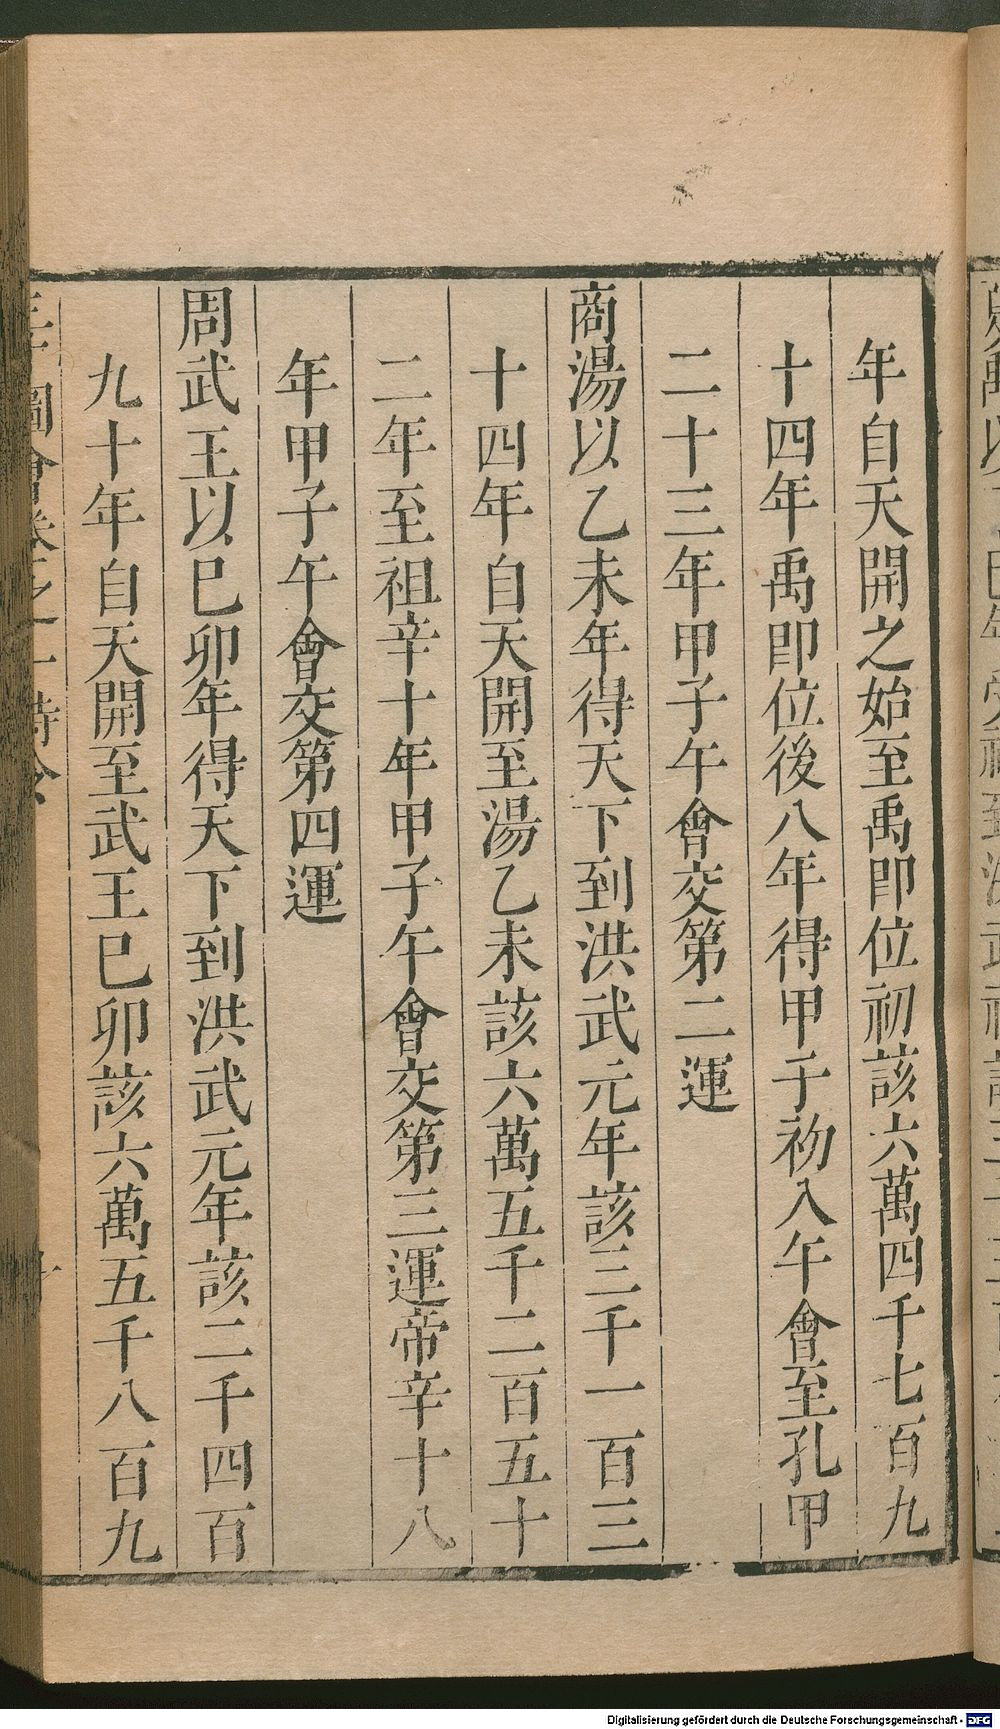 年自天開之始至禹即位初該六萬四千七百九
十四年禹即位後八年得甲子初入午會至孔甲
二十三年甲子午會交第二運
商湯以乙未年得天下到洪武元年該三千一百三
十四年自天開至湯乙未該六萬五千二百五十
二年至祖辛十年甲子午會交第三運帝辛十八
年甲子午會交第四運
周武王以巳卯年得天下到洪武元年該二千四百
九十年自天開至武王巳卯該六萬五千八百九
圖會卷之一 時令
Digitalisierung gefördert durch die Deutsche Forschungsgemeinschaft - DFG